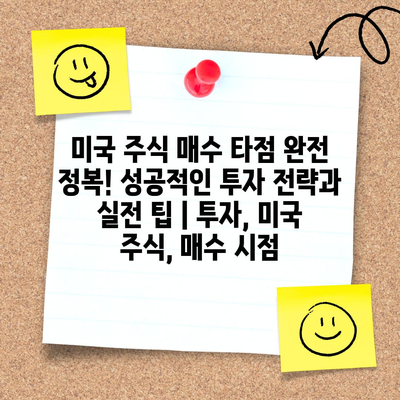 미국 주식 매수 타점 완전
정복! 성공적인 투자 전략과
실전 팁 | 투자, 미국
주식, 매수 시점